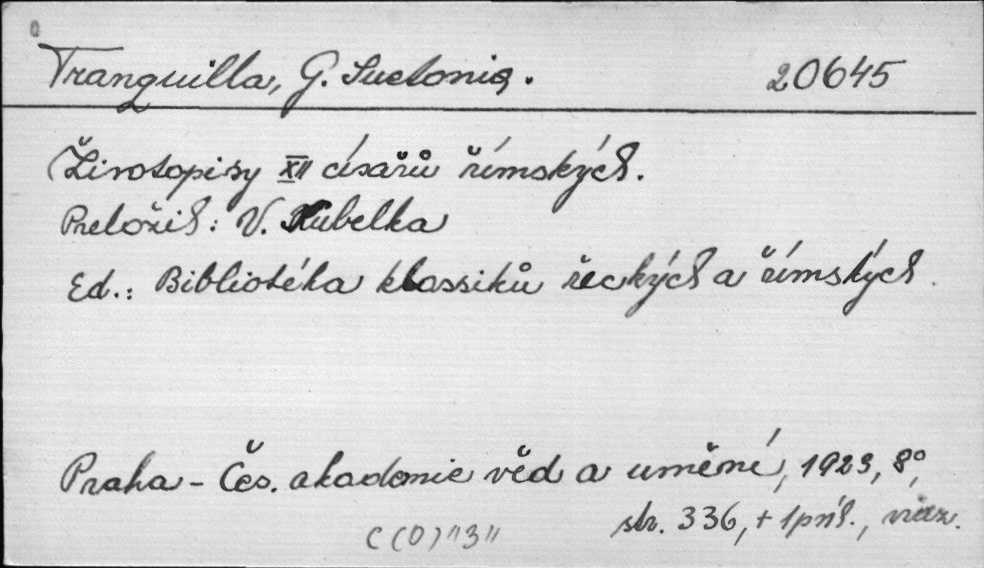 Tranquilla, G. Suetonia. 20645
Životopisy XII císařů římských.
Preložil: V. Kubelka
Ed.: Bibliotéka klassiků řeckých a římských.
Praha - Čes. akademie věd a umění, 1923, 8°,
str. 336, + 1 príl., viaz.
C (0) "3"